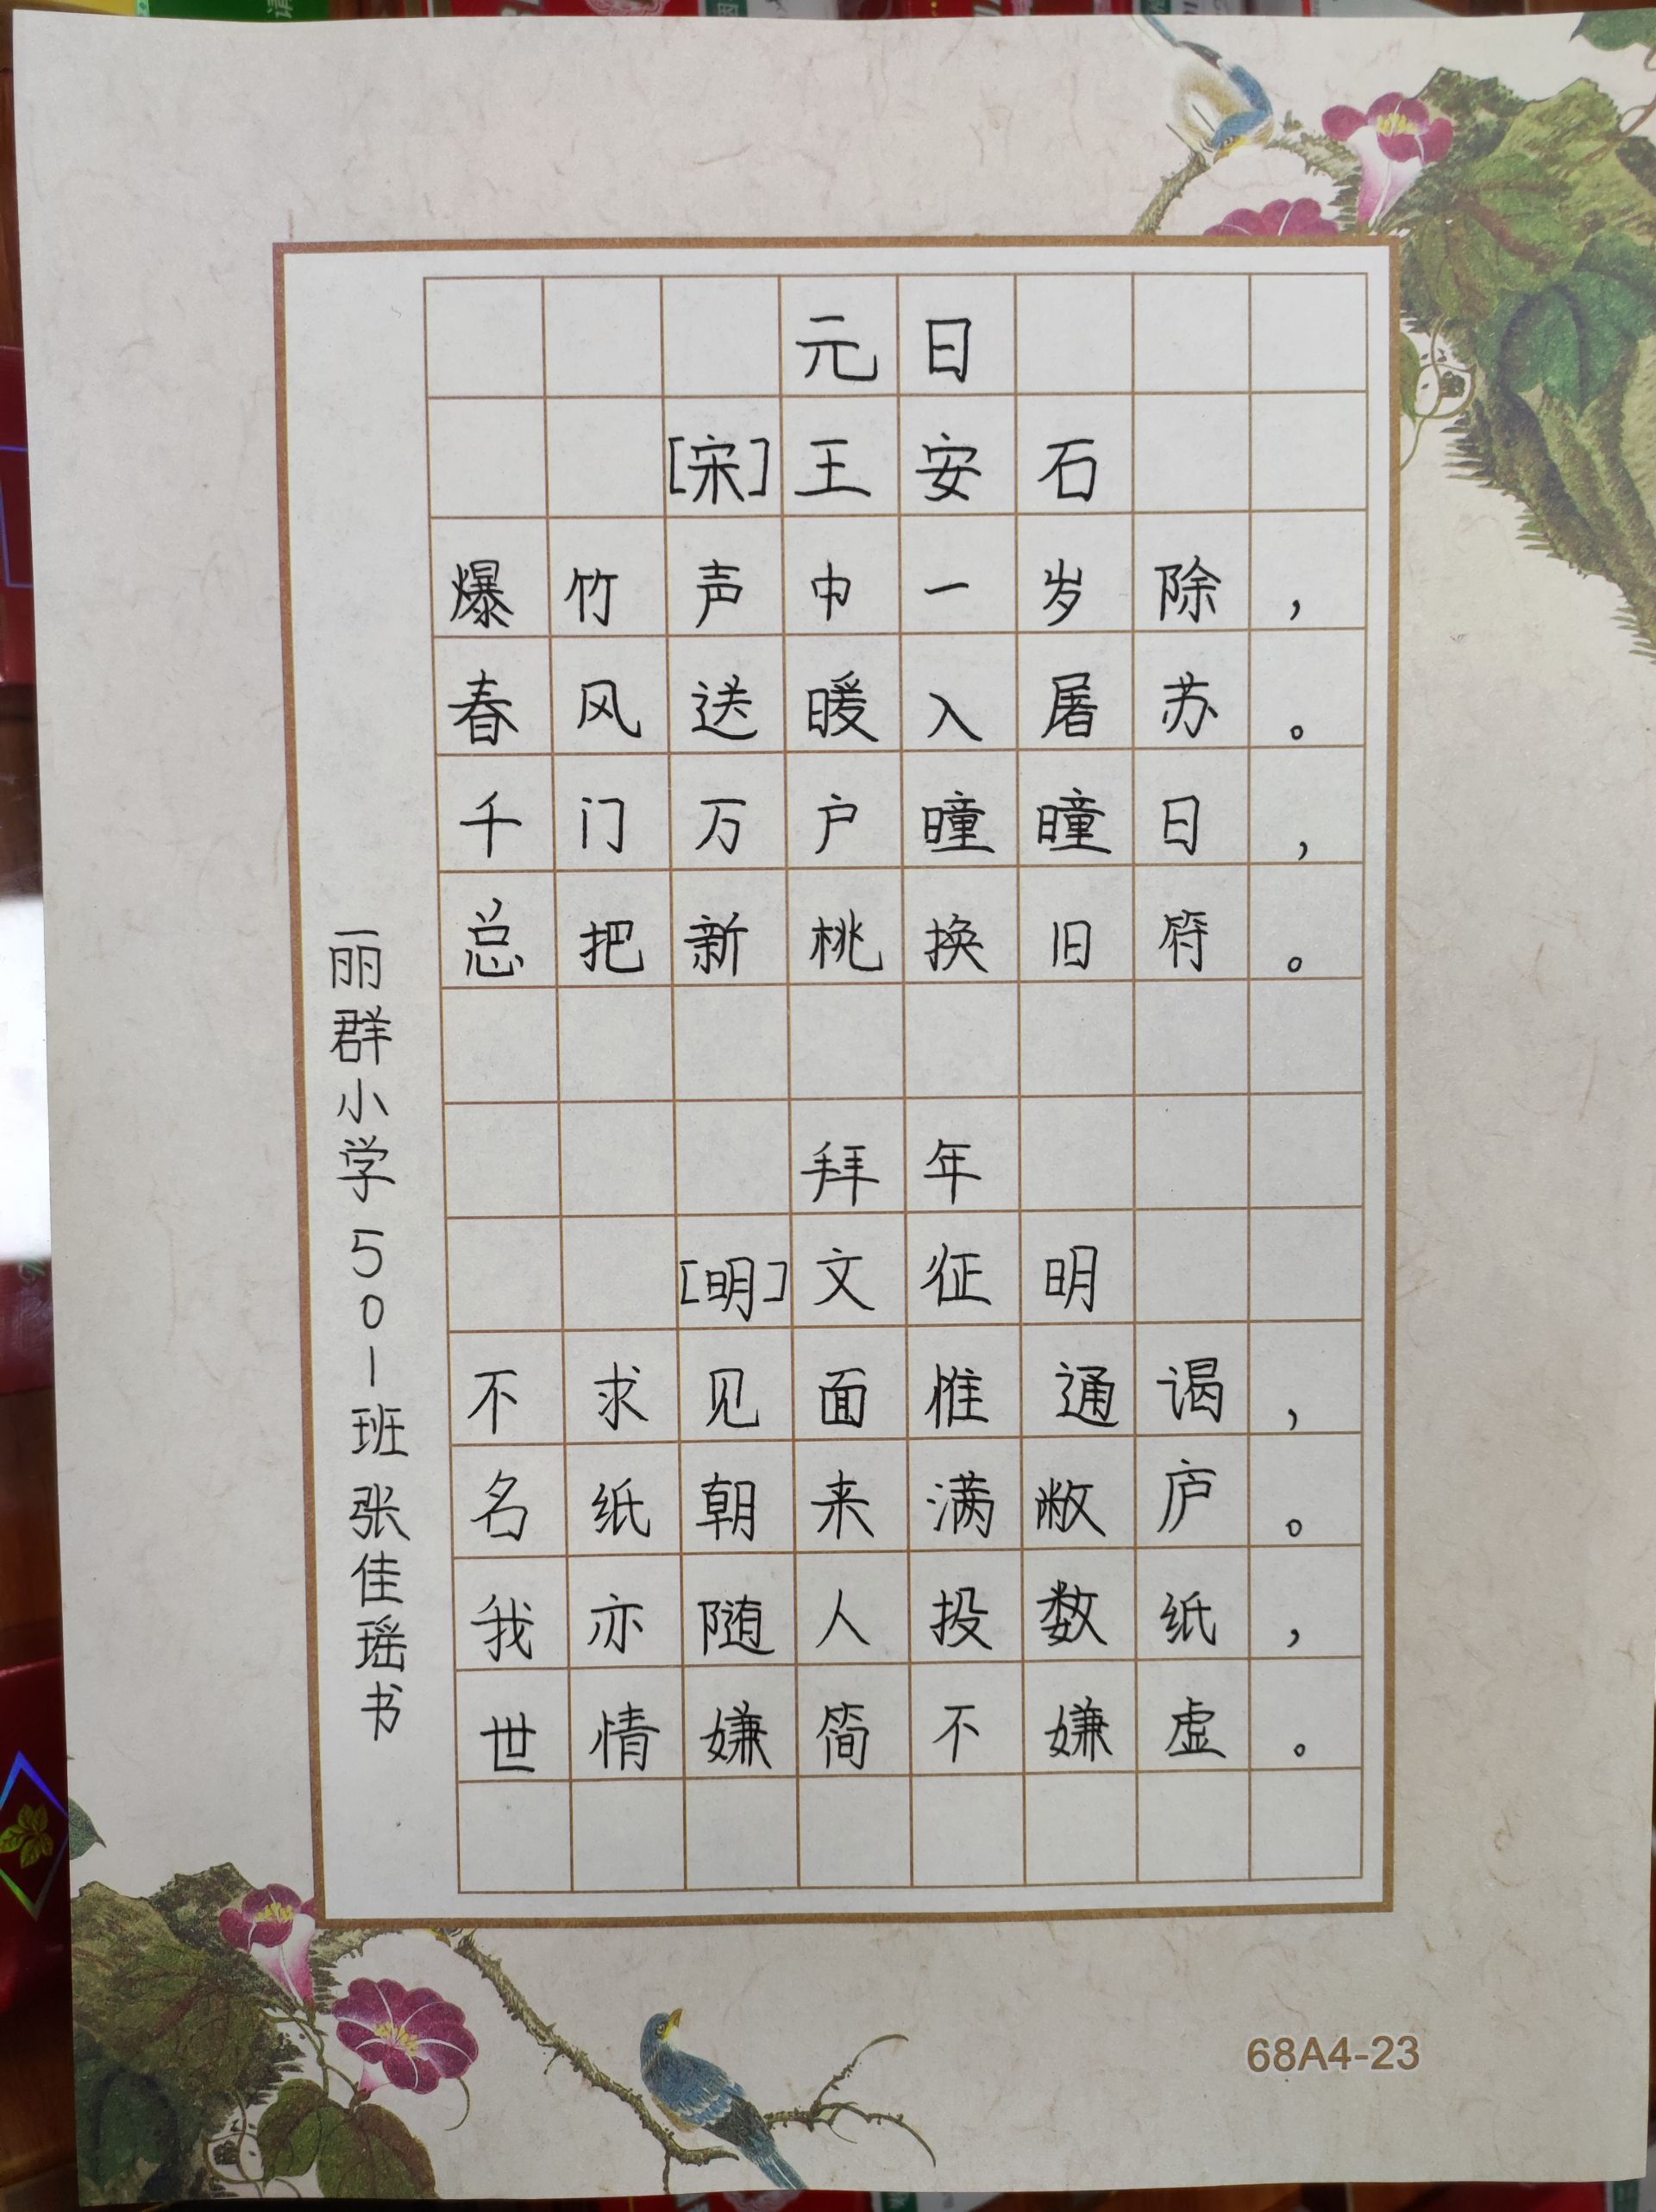 元日
[宋]王安石
爆竹声中一岁除，
春风送暖入屠苏。
千门万户曈曈日，
总把新桃换旧符。
拜年
[明]文征明
不求见面惟通谒，
名纸朝来满敝庐。
我亦随人投数纸，
世情嫌简不嫌虚。
丽群小学501班张佳瑶书
68A4-23